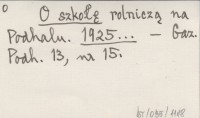 O szkołę rolniczą na
Podhalu. 1925... — Gaz.
Podh. 13, nr 15.